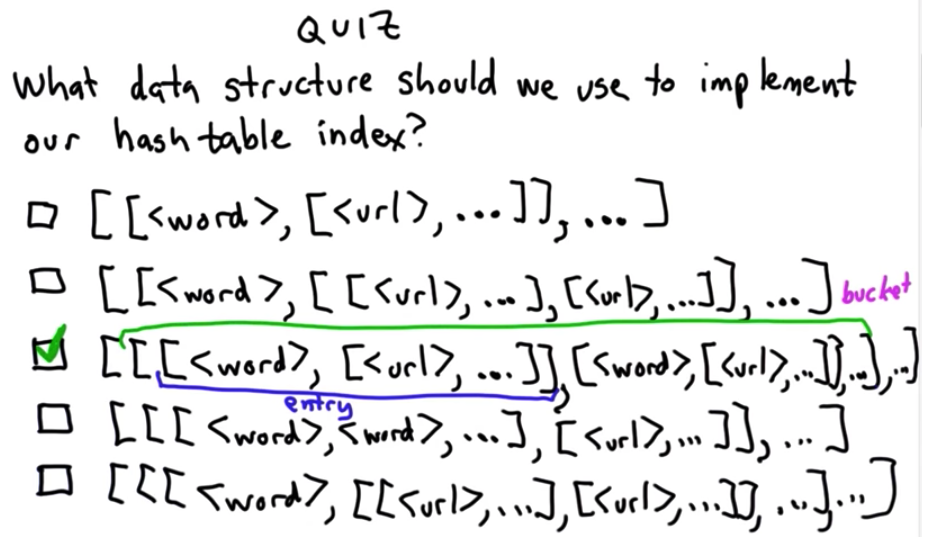 QUIZ
What data structure should we use to implement
our hash table index?
[[<word>, [<url>, ...]], ...]
[[<word>, [[<url>, ...], [<url>, ...]], ...]
bucket
[[[<word>, [<url>, ...]], [<word>, [<url>, ...]], ...], ...]
entry
[[[<word>, <word>, ...], [<url>, ...]], ...]
[[[<word>, [[<url>, ...], [<url>, ...]], ...], ...]